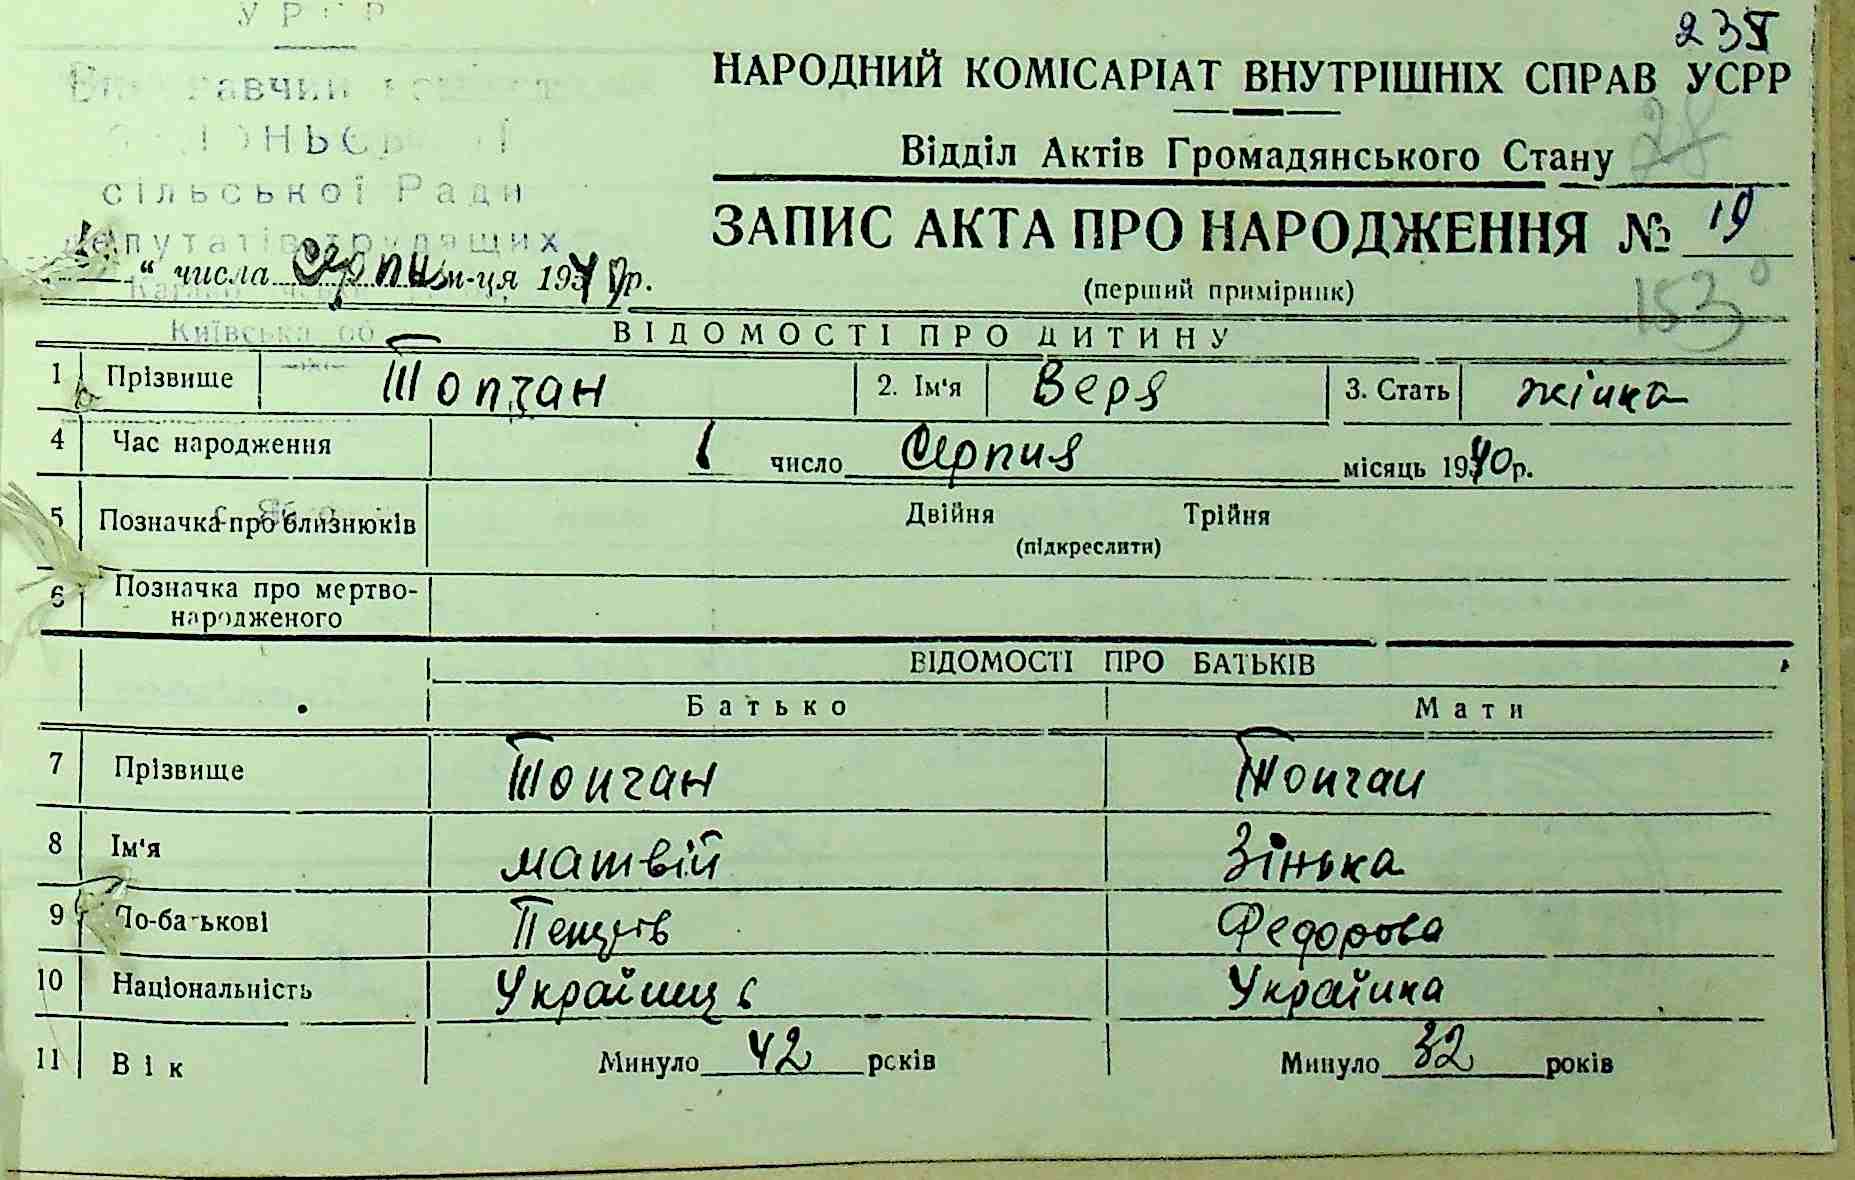 УРСР
235
НАРОДНИЙ КОМІСАРІАТ ВНУТРІШНІХ СПРАВ УСРР
28
Відділ Актів Громадянського Стану
сільської Ради
ЗАПИС АКТА ПРО НАРОДЖЕННЯ № 19
депутатів трудящих
“ числа Серпня м-ця 1940 р.
(перший примірник)
153
Київська об
ВІДОМОСТІ ПРО ДИТИНУ
1 Прізвище Топчан 2. Ім'я Вера 3. Стать жінка
4 Час народження 1 число Серпня місяць 1940 р.
5 Позначка про близнюків Двійня Трійня
(підкреслити)
6 Позначка про мертво-
народженого
ВІДОМОСТІ ПРО БАТЬКІВ
Батько Мати
7 Прізвище Топчан Топчан
8 Ім'я Матвій Зінька
9 По-батькові Федорова
10 Національність Українець Українка
11 Вік Минуло 42 років Минуло 32 років